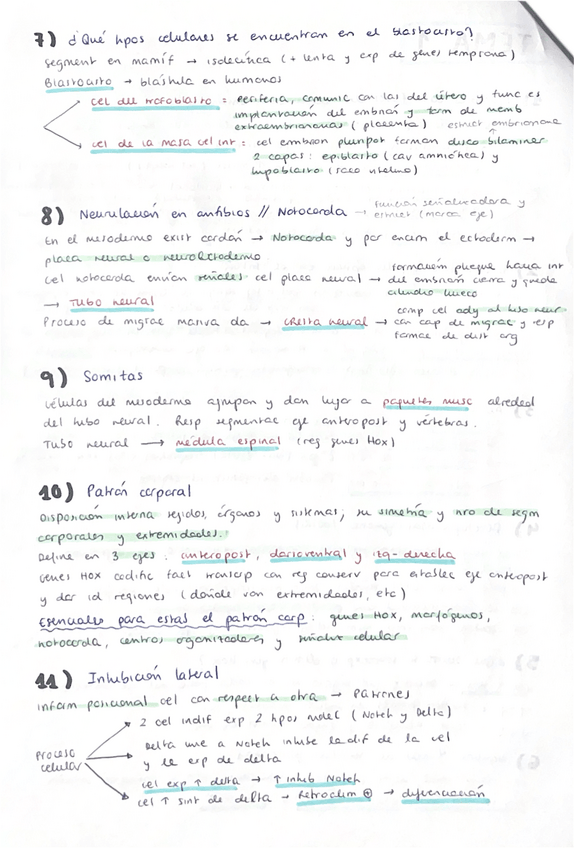 7) ¿Qué tipos celulares se encuentran en el blastocisto?
segment en mamíf → isolecítica (+ lenta y exp de genes temprana)
Blastocisto → blástula en humanos
cel del trofoblasto: periferia, comunic con las del útero y func es
implantación del embrión y form de memb
extraembrionarias (placenta) estruct embrionaria
cel de la masa cel int: cel embrion pluripot forman disco bilaminar
2 capas: epiblasto (cav amniótica) y
hipoblasto (saco vitelino)
8) Neurulación en anfibios // Notocorda → función señalizadora y
estruct (marca eje)
En el mesodermo exist cordón → Notocorda y por encim el ectoderm →
placa neural o neuroectodermo
Cel notocorda envían señales cel placa neural → formación pliegue hacia int
del embrión cierra y queda
cilindro hueco
→ Tubo neural
Proceso de migrac masiva da → cresta neural → comp cel ady al tubo neur
con cap de migrac y esp
formac de dist org
9) Somitas
Células del mesodermo agrupan y dan lugar a paquetes musc alreded
del tubo neural. Resp segmentac eje anteropost y vértebras.
Tubo neural → médula espinal (reg genes Hox)
10) Patrón corporal
Disposición interna tejidos, órganos y sistemas; su simetría y nro de segm
corporales y extremidades.
Define en 3 ejes. anteropost, dorsoventral y izq-derecha
Genes HOX codific fact transcrip con reg conserv para establec eje anteropost
y dar id regiones (donde van extremidades, etc)
Esenciales para estas el patrón corp: genes Hox, morfógenos,
notocorda, centros organizadores y señaliz celular
11) Inhibición lateral
Inform posicional cel con respect a otra → Patrones
Proceso
celular
2 cel indif exp 2 tipos molec (Notch y Delta)
Delta une a Notch inhibe la dif de la cel
y la exp de delta
cel exp ↑ delta → ↑ inhib Notch
cel ↑ sint de delta → Retroalim ⊕ → diferenciación